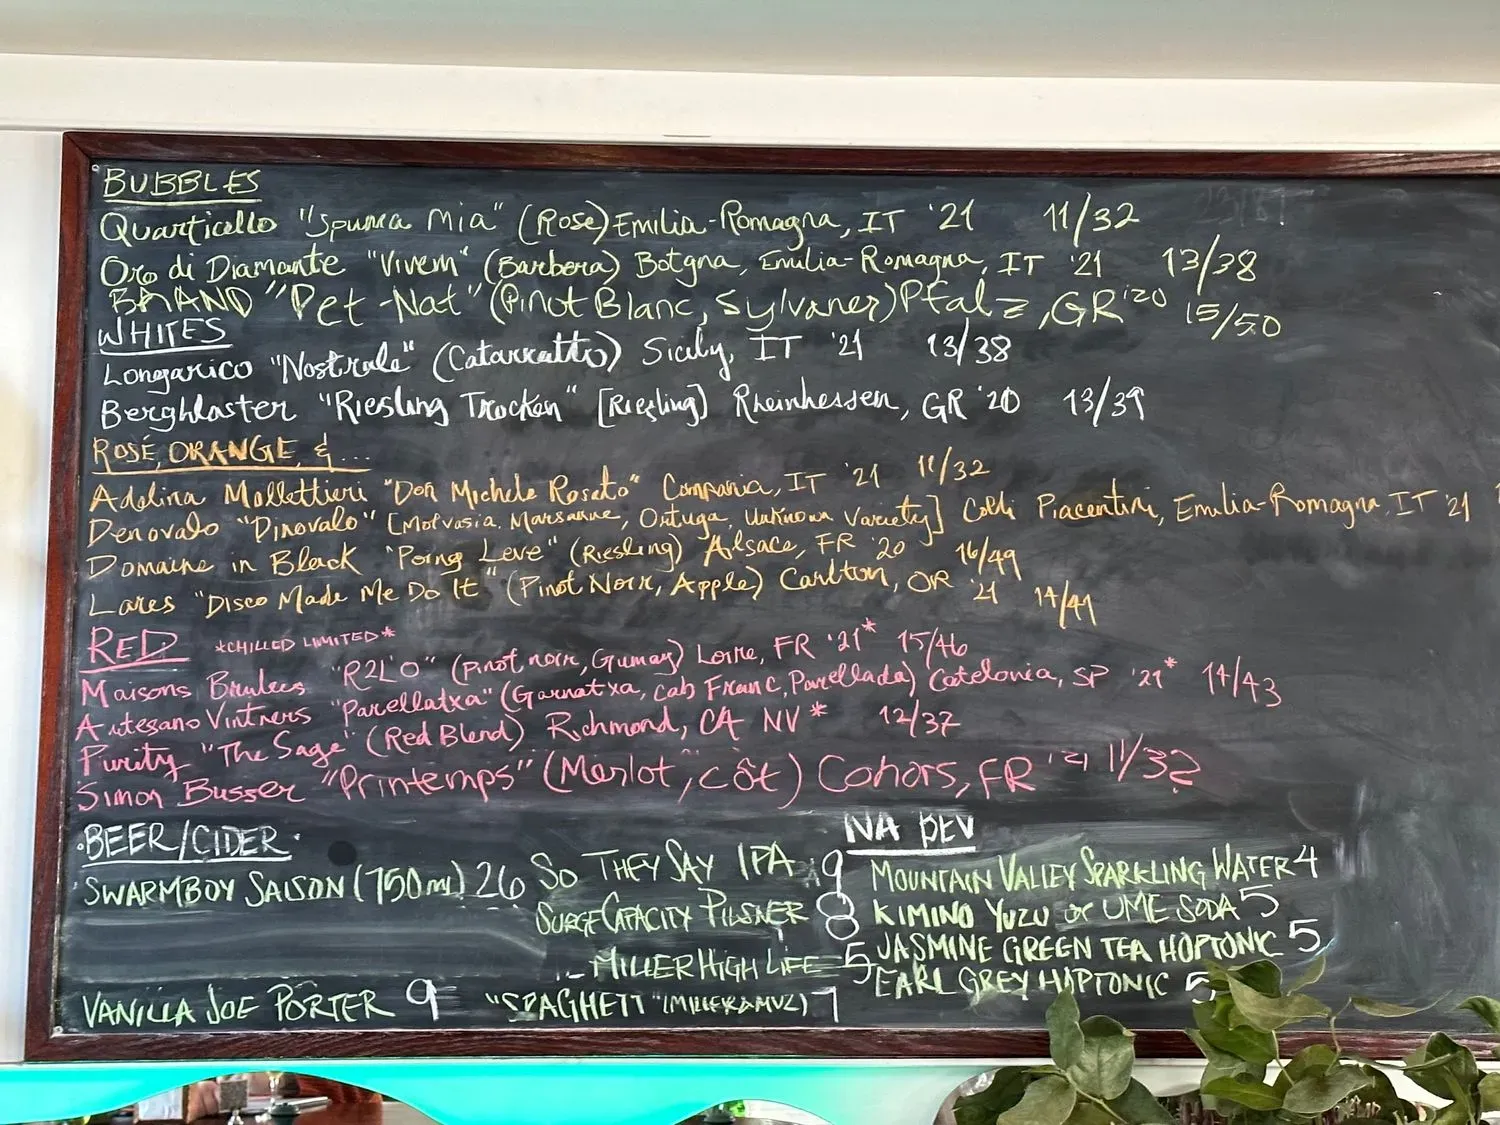 BUBBLES
Quarticello "Spuma Mia" (Rose) Emilia-Romagna, IT '21 11/32
Oro di Diamante "Vivem" (Barbera) Botgna, Emilia-Romagna, IT '21 13/38
BRAND "Pet-Nat" (Pinot Blanc, Sylvaner) Pfalz, GR '20 15/50
WHITES
Longarico "Nostrale" (Catarratto) Sicily, IT '21 13/38
Bergkloster "Riesling Trocken" [Riesling] Rheinhessen, GR '20 13/39
ROSÉ, ORANGE, & ...
Adelina Mollettieri "Don Michele Rosato" Campania, IT '21 11/32
Denovalo "Dinovalo" [Malvasia, Marsanne, Ortuga, Unknown Variety] Colli Piacentini, Emilia-Romagna, IT '21
Domaine in Black "Poing Leve" (Riesling) Alsace, FR '20 16/49
Lares "Disco Made Me Do It" (Pinot Noir, Apple) Carlton, OR '21 14/41
RED *CHILLED LIMITED*
Maisons Brulees "R2L'O" (Pinot noir, Gumay) Loire, FR '21* 15/46
Artesano Vintners "Parellatxa" (Garnatxa, Cab Franc, Parellada) Catelonia, SP '21* 14/43
Purity "The Sage" (Red Blend) Richmond, CA NV* 12/37
Simon Busser "Printemps" (Merlot, côt) Cahors, FR '21 11/32
BEER/CIDER
SWARMBOY SAISON (750ml) 26
VANILLA JOE PORTER 9
SO THEY SAY IPA 9
SURGE CAPACITY PILSNER 8
MILLER HIGH LIFE 5
"SPAGHETT" (MILLER & AMVZ) 7
NA BEV
MOUNTAIN VALLEY SPARKLING WATER 4
KIMINO YUZU or UME SODA 5
JASMINE GREEN TEA HOPTONIC 5
EARL GREY HAPTONIC 5